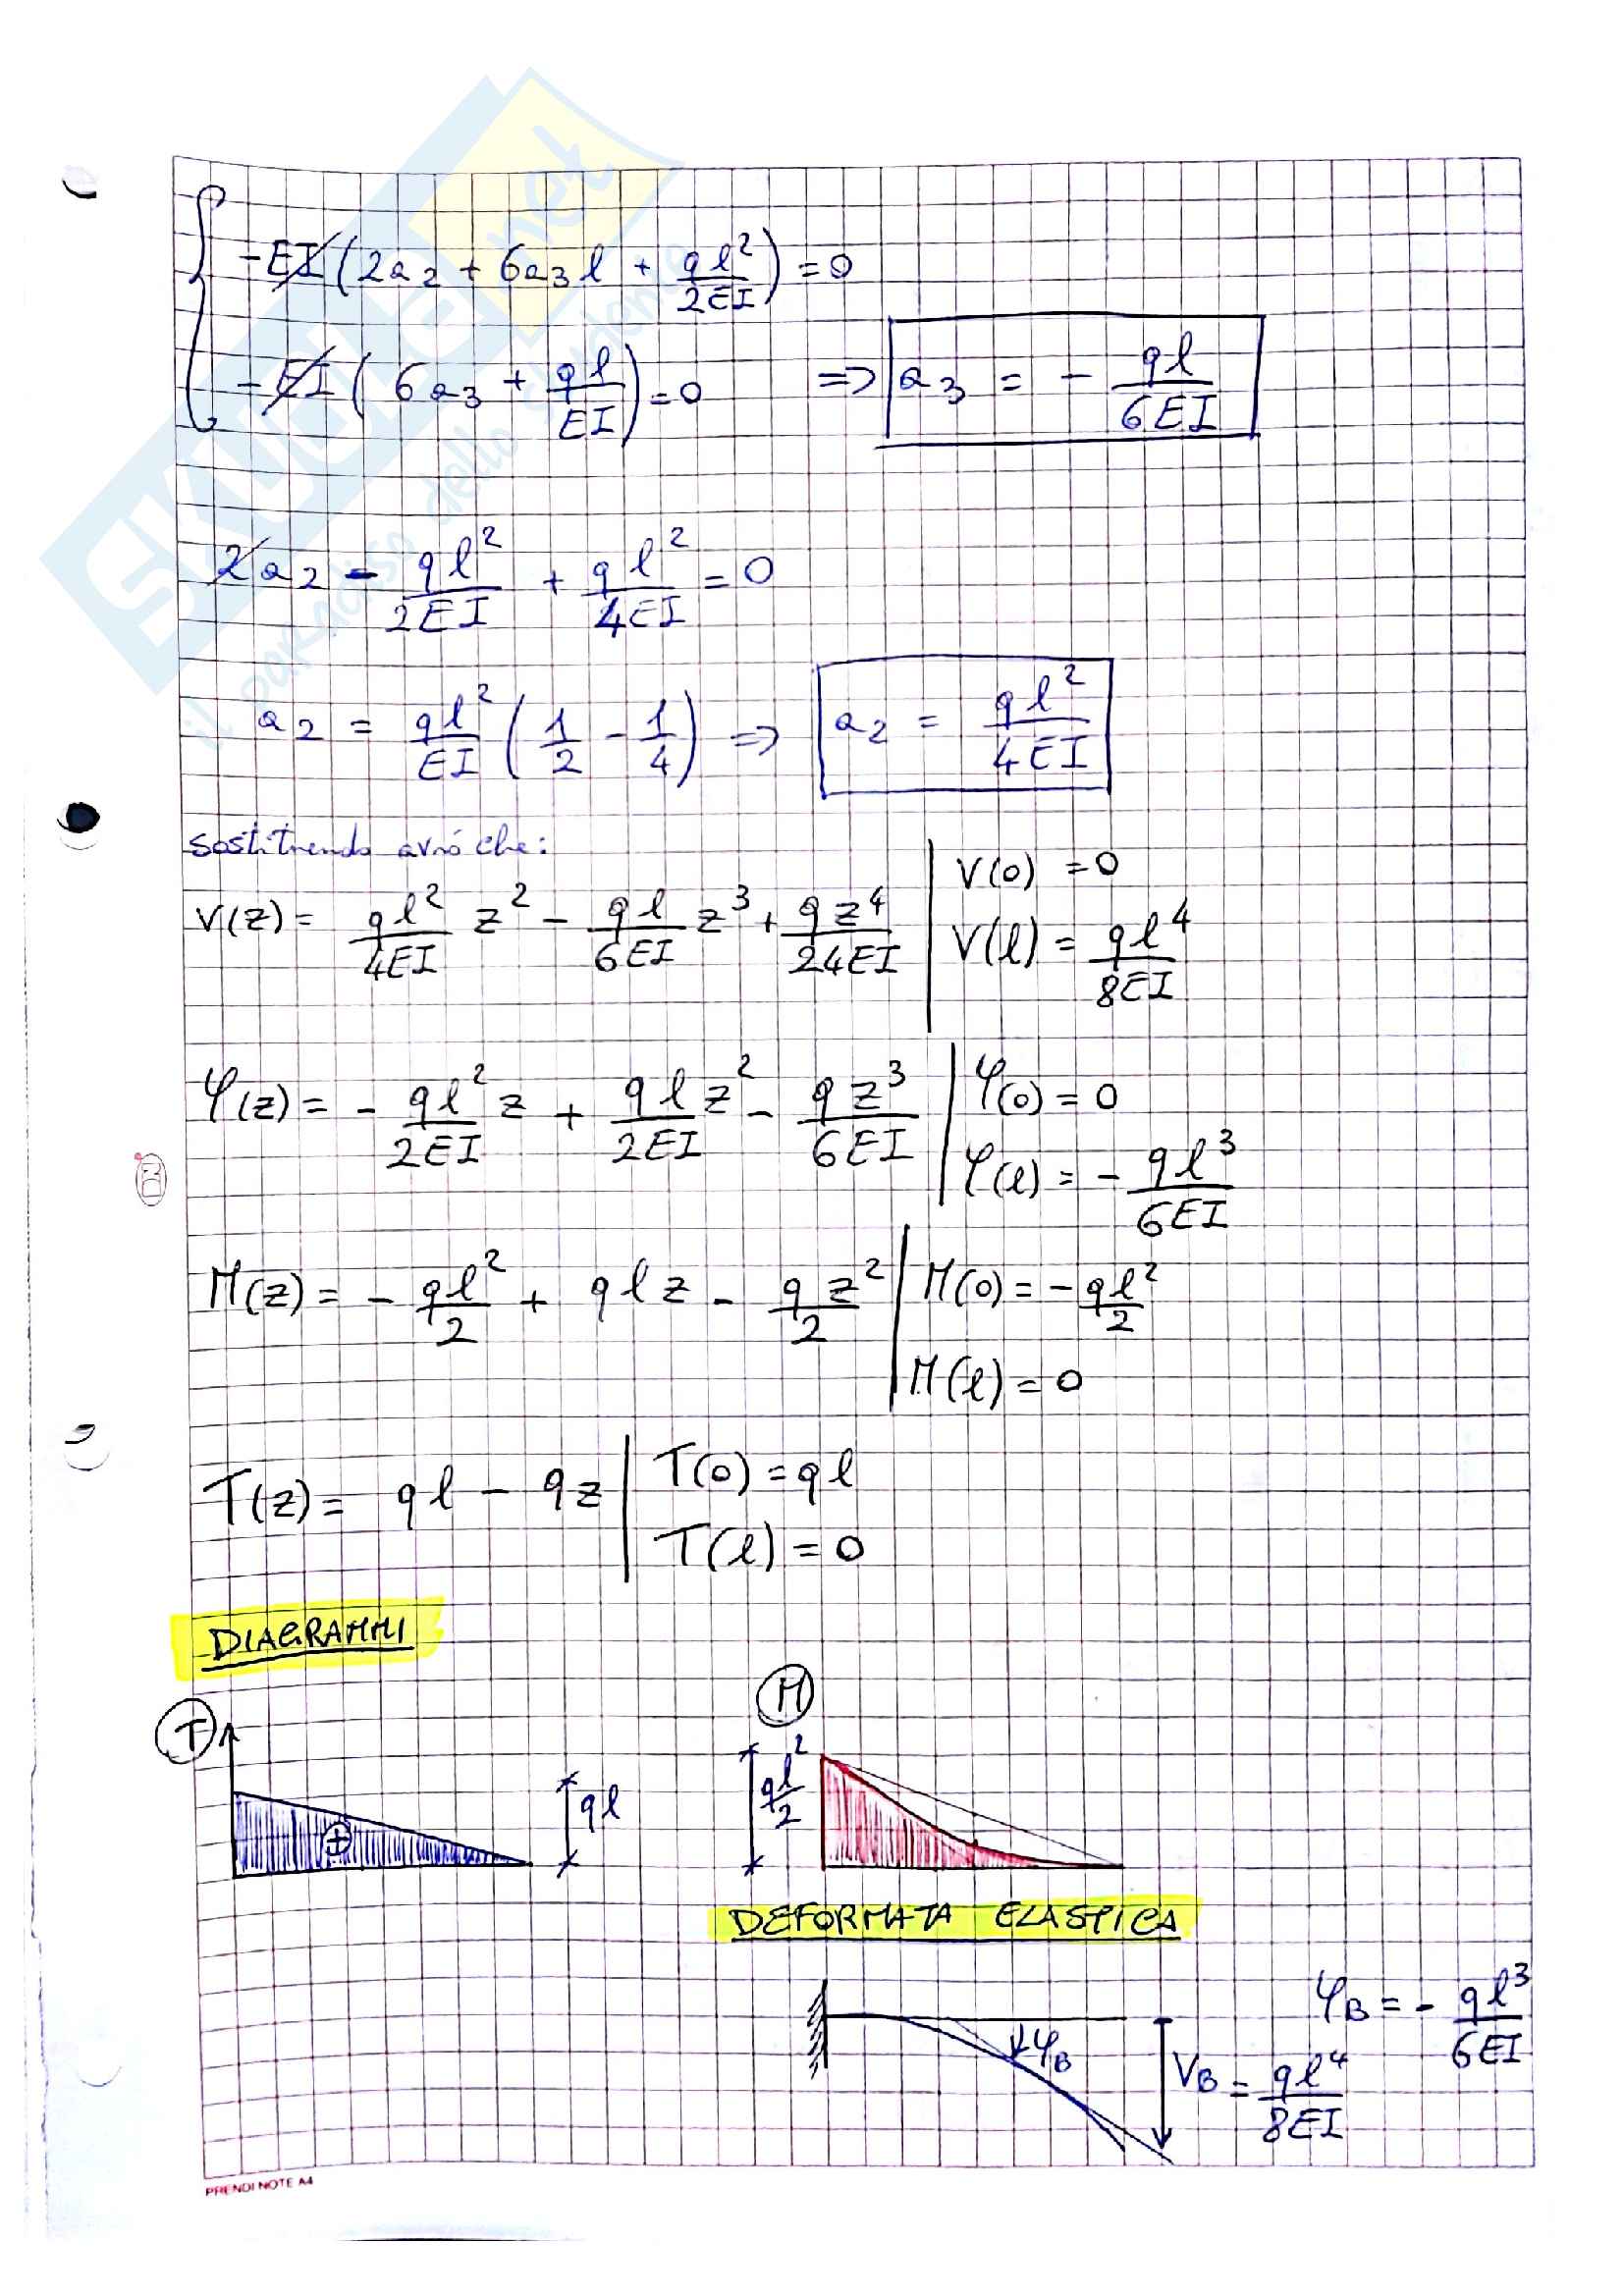 -EI(2a₂ + 6a₃l + ql²/2EI) = 0
-EI(6a₃ + ql/EI) = 0 => a₃ = - ql/6EI
2a₂ - ql²/2EI + ql²/4EI = 0
a₂ = ql²/EI (1/2 - 1/4) => a₂ = ql²/4EI
sostituendo avrò che:
V(z) = ql²/4EI z² - ql/6EI z³ + qz⁴/24EI | V(0) = 0
V(l) = ql⁴/8EI
φ(z) = - ql²/2EI z + qlz²/2EI - qz³/6EI | φ(0) = 0
φ(l) = - ql³/6EI
M(z) = - ql²/2 + qlz - qz²/2 | M(0) = - ql²/2
M(l) = 0
T(z) = ql - qz | T(0) = ql
T(l) = 0
DIAGRAMMI
T
ql
M
ql²/2
DEFORMATA ELASTICA
φB
φB = - ql³/6EI
VB = ql⁴/8EI
PRENDI NOTE A4
SKUOLA.net
il paradiso dello studente